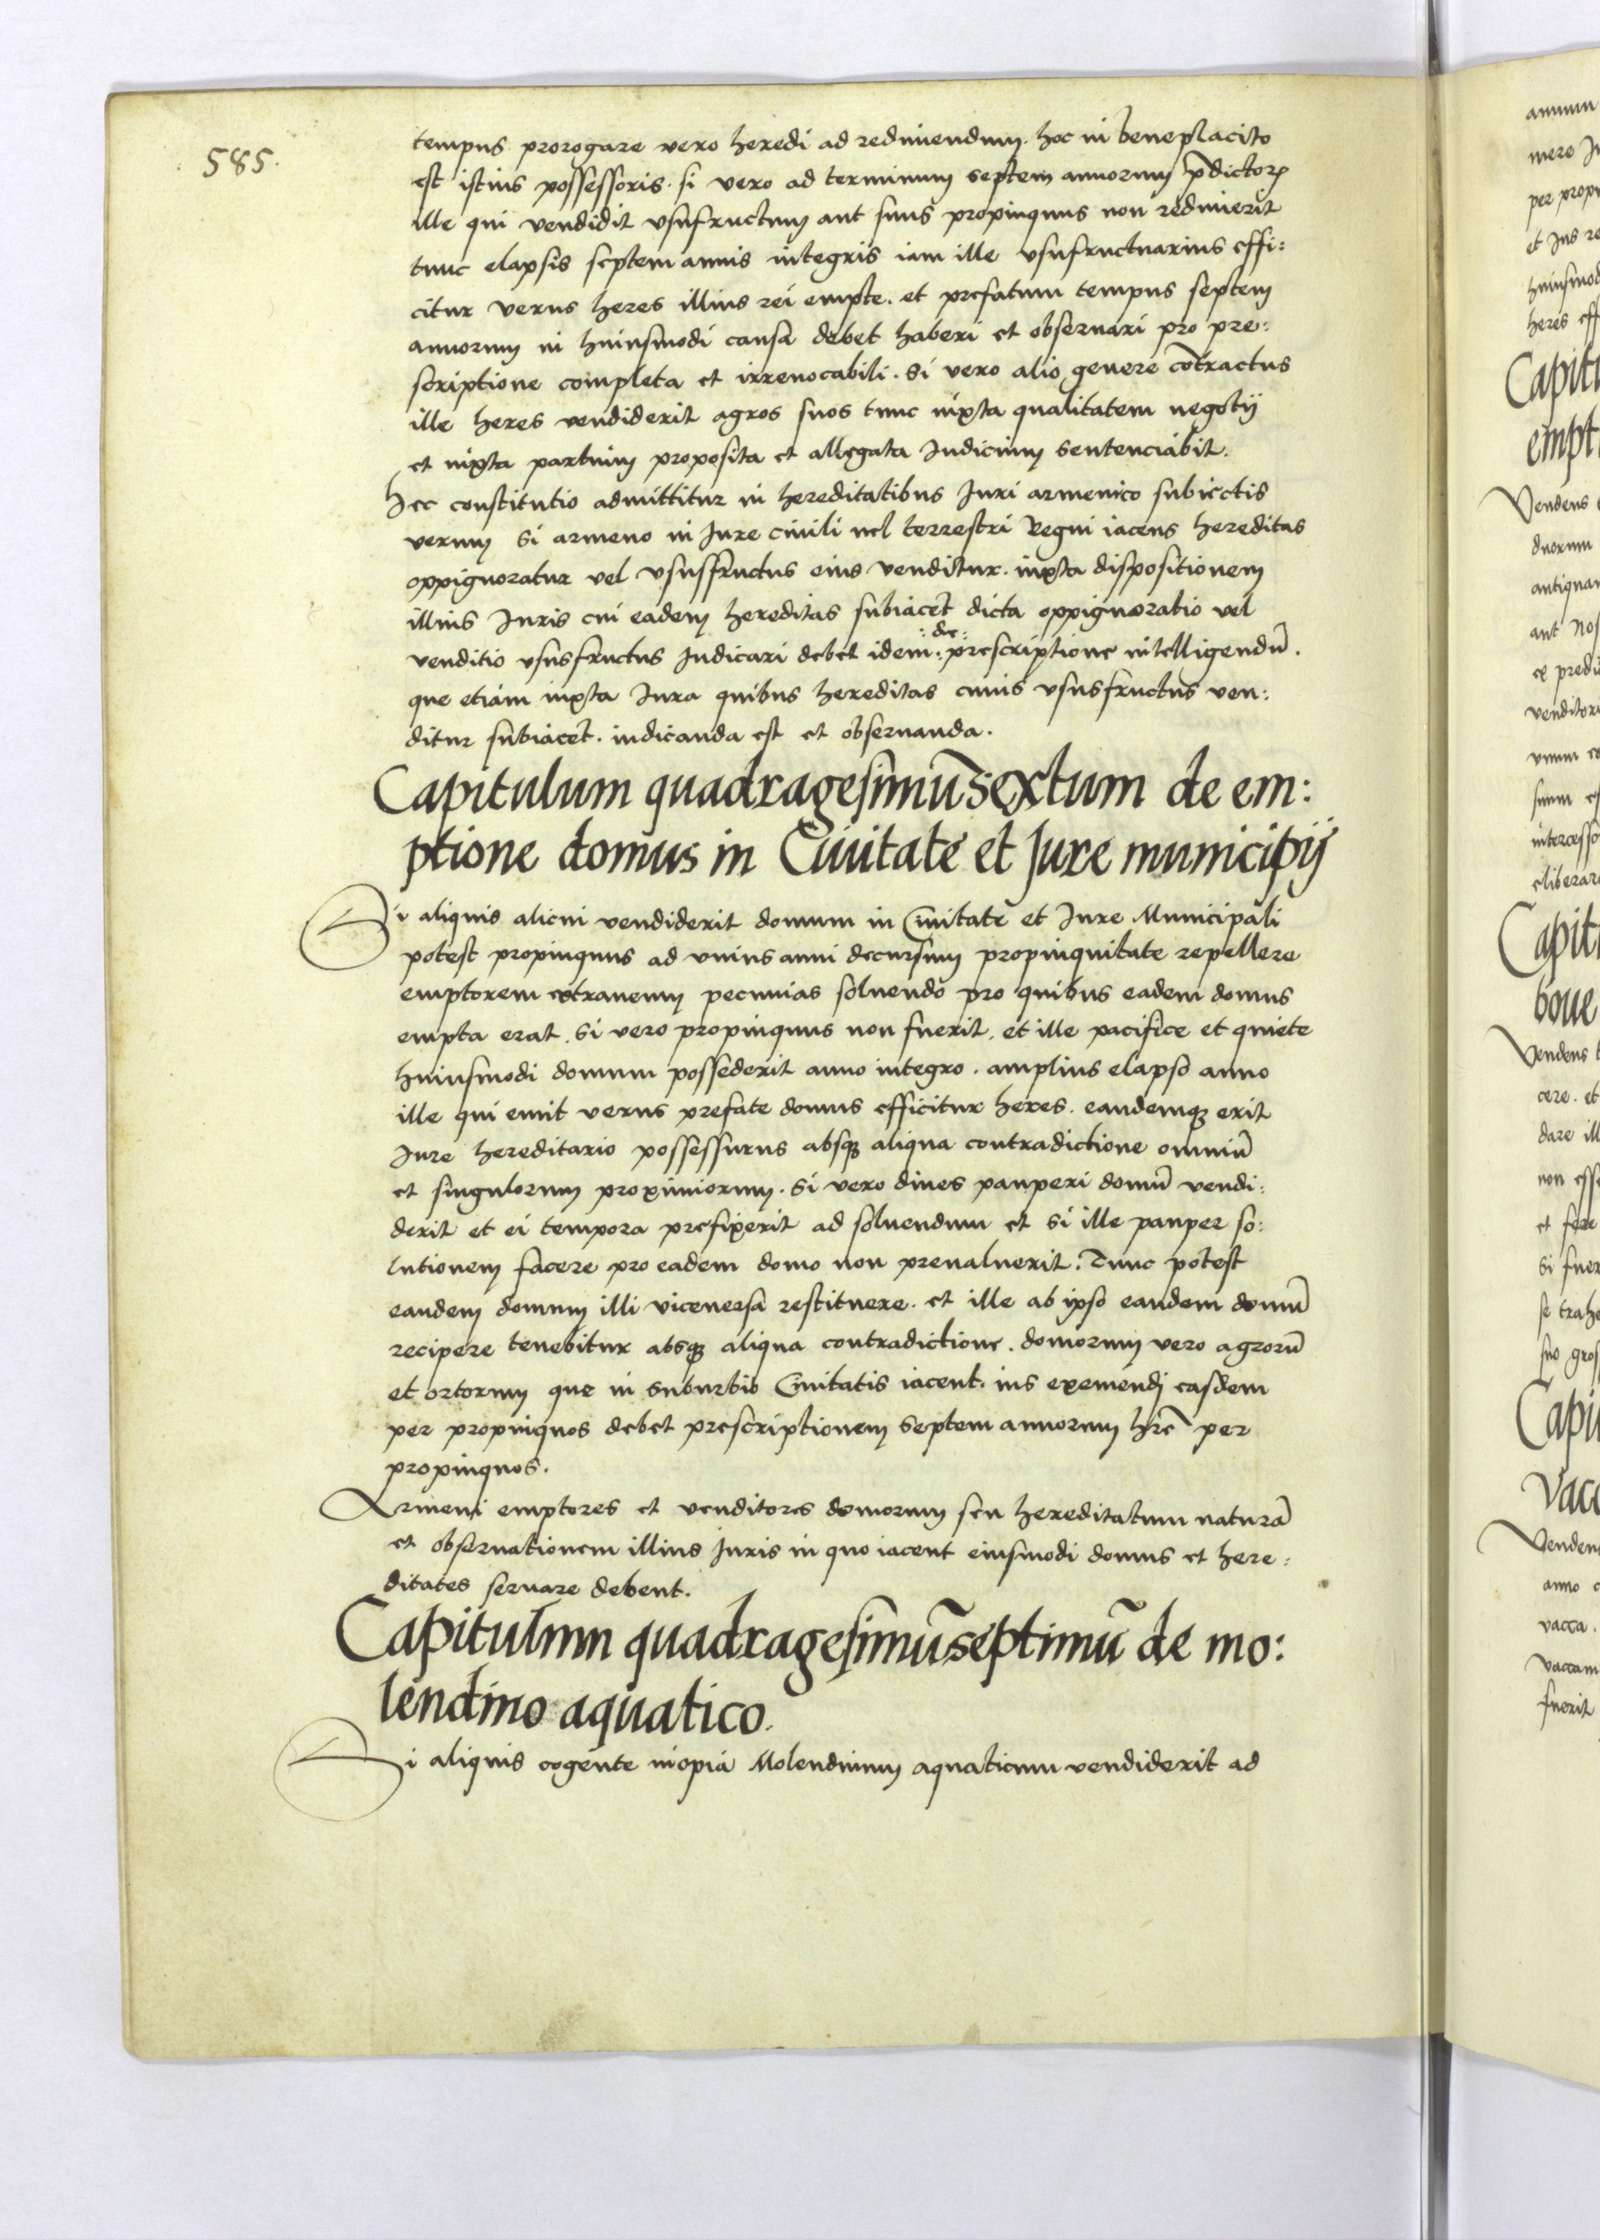 585.
tempus prorogare vero heredi ad redimendum. hoc in beneplacito
est istius possessoris. si vero ad terminum septem annorum p̄dictoꝝ
ille qui vendidit vsufructum aut suus propinquus non redimerit
tunc elapsis septem annis integris iam ille vsufructuarius effi:
citur verus heres illius rei empte. et prefatum tempus septem
annorum in huiusmodi causa debet haberi et obseruari pro pre:
scriptione completa et irreuocabili. Si vero alio genere cōtractus
ille heres vendiderit agros suos tunc iuxta qualitatem negotij
et iuxta partium proposita et allegata Iudicium sentenciabit.
Hec constitutio admittitur in hereditatibus Iuri armenico subiectis
verum si armeno in Iure ciuili uel terrestri Regni iacens hereditas
oppignoratur vel vsusfructus eius venditur. iuxta dispositionem
illius Iuris cui eadem hereditas subiacet dicta oppignoratio vel
venditio vsusfructus Iudicari debet idem :de: prescriptione intelligendū.
que etiam iuxta Iura quibus hereditas cuius vsusfructus ven:
ditur subiacet. iudicanda est et obseruanda.
Capitulum quadragesimūsextum de em:
ptione domus in Ciuitate et Jure municipij
Si aliquis alicui vendiderit domum in Ciuitate et Iure Municipali
potest propinquus ad vnius anni decursum propinquitate repellere
emptorem extraneum pecunias soluendo pro quibus eadem domus
empta erat. si vero propinquus non fuerit. et ille pacifice et quiete
huiusmodi domum possederit anno integro. amplius elapso anno
ille qui emit verus prefate domus efficitur heres. eandemqꝫ erit
Iure hereditario possessurus absqꝫ aliqua contradictione omniū
et singulorum proximiorum. Si vero diues pauperi domū vendi:
derit et ei tempora prefixerit ad soluendum et si ille pauper so:
lutionem facere pro eadem domo non preualuerit. Tunc potest
eandem domum illi viceuersa restituere. et ille ab ipso eandem domū
recipere tenebitur absqꝫ aliqua contradictione. domorum vero agrorū
et ortorum que in suburbio Ciuitatis iacent. ius exemendi easdem
per propinquos debet prescriptionem septem annorum hr̄e per
propinquos.
Armeni emptores et venditores domorum seu hereditatum naturā
et obseruationem illius Iuris in quo iacent eiusmodi domus et here:
ditates seruare debent.
Capitulum quadragesimūseptimū de mo:
lendino aquatico.
Si aliquis cogente inopia Molendinum aquaticum vendiderit ad